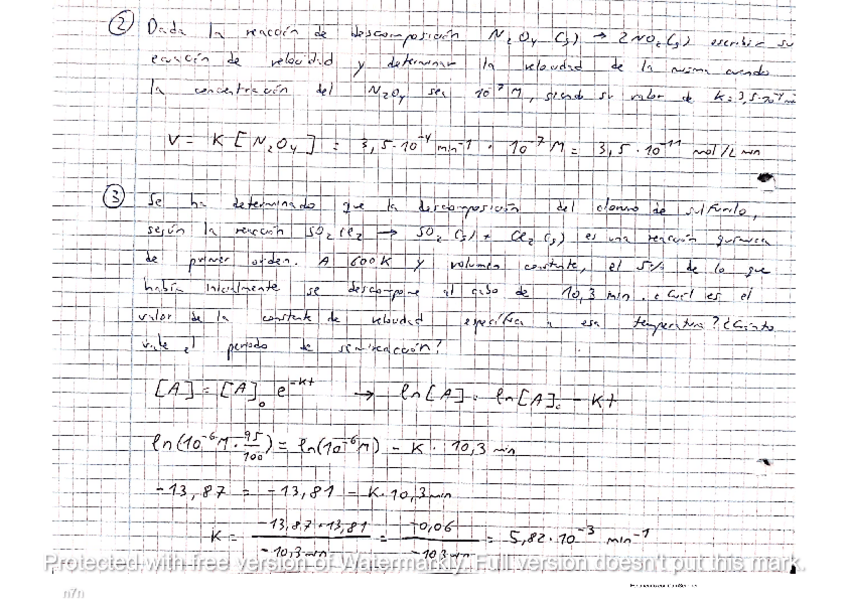 ② Dada la reacción de descomposición N₂O₄ (g) → 2NO₂ (g) escribir su
ecuación de velocidad y determinar la velocidad de la misma cuando
la concentración del N₂O₄ sea 10⁻⁷ M, siendo su valor de K = 3,5·10⁻⁴
V = K [N₂O₄] = 3,5·10⁻⁴ min⁻¹ · 10⁻⁷ M = 3,5·10⁻¹¹ mol/L min
③ Se ha determinado que la descomposición del cloruro de sulfurilo,
según la reacción SO₂Cl₂ → SO₂ (g) + Cl₂ (g) es una reacción química
de primer orden. A 600K y volumen constante, el 5% de lo que
había inicialmente se descompone al cabo de 10,3 min. ¿Cuál es el
valor de la constante de velocidad específica a esa temperatura? ¿Cuánto
vale el periodo de semirreacción?
[A] = [A]₀ e⁻ᴷᵗ → ln[A] = ln[A]₀ - Kt
ln(10⁻⁶M · 95/100) = ln(10⁻⁶M) - K · 10,3 min
-13,87 = -13,81 - K·10,3 min
K = -13,87+13,81 / -10,3 min = -0,06 / -10,3 min = 5,82·10⁻³ min⁻¹
Protected with free version of Watermarkly. Full version doesn't put this mark.
n7n